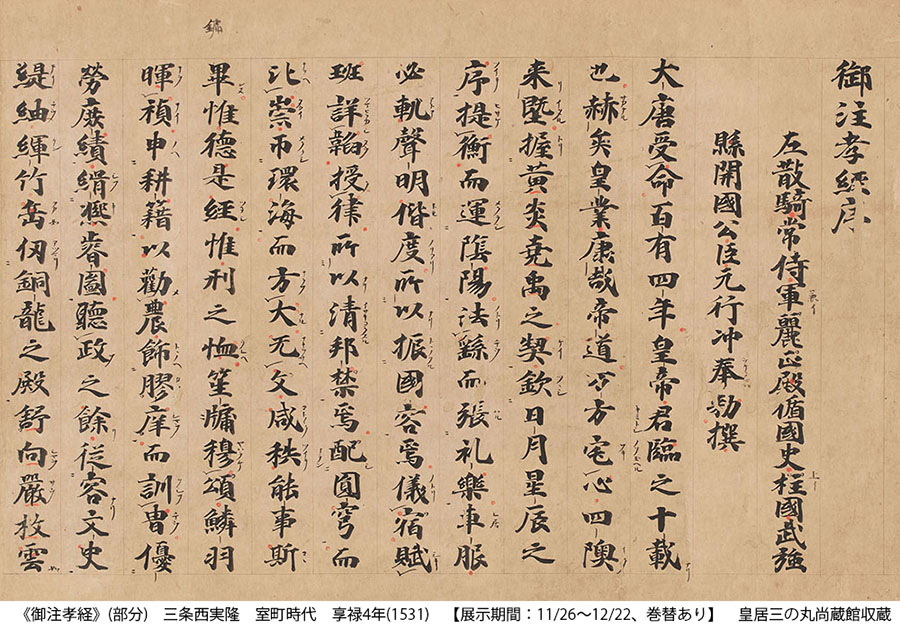 御注孝經序
左散騎常侍軍麗正殿脩國史柱國武強
縣開國公臣元行沖奉勅撰
大唐受命百有四年皇帝君臨之十載
也赫矣皇業康哉帝道万方宅心四隩
来曁握黃炎堯禹之契欽日月星辰之
序提衡而運陰陽法繇而張礼樂車服
必軌聲明偕度所以振國容焉儀宿賦
班詳韜授律所以清邦禁焉配圓穹而
比崇帀環海而方大无文咸秩能事斯
畢惟德是經惟刑之恤笙牗穆頌鱗羽
暉禎申耕籍以勸農飾膠庠而訓胄優
勞庶績緝熙睿圖聽政之餘従容文史
緹紬緷竹啇伋銅龍之殿舒向嚴枚雲
鏽
《御注孝経》(部分) 三条西実隆 室町時代 享禄4年(1531) 【展示期間:11/26〜12/22、巻替あり】 皇居三の丸尚蔵館収蔵